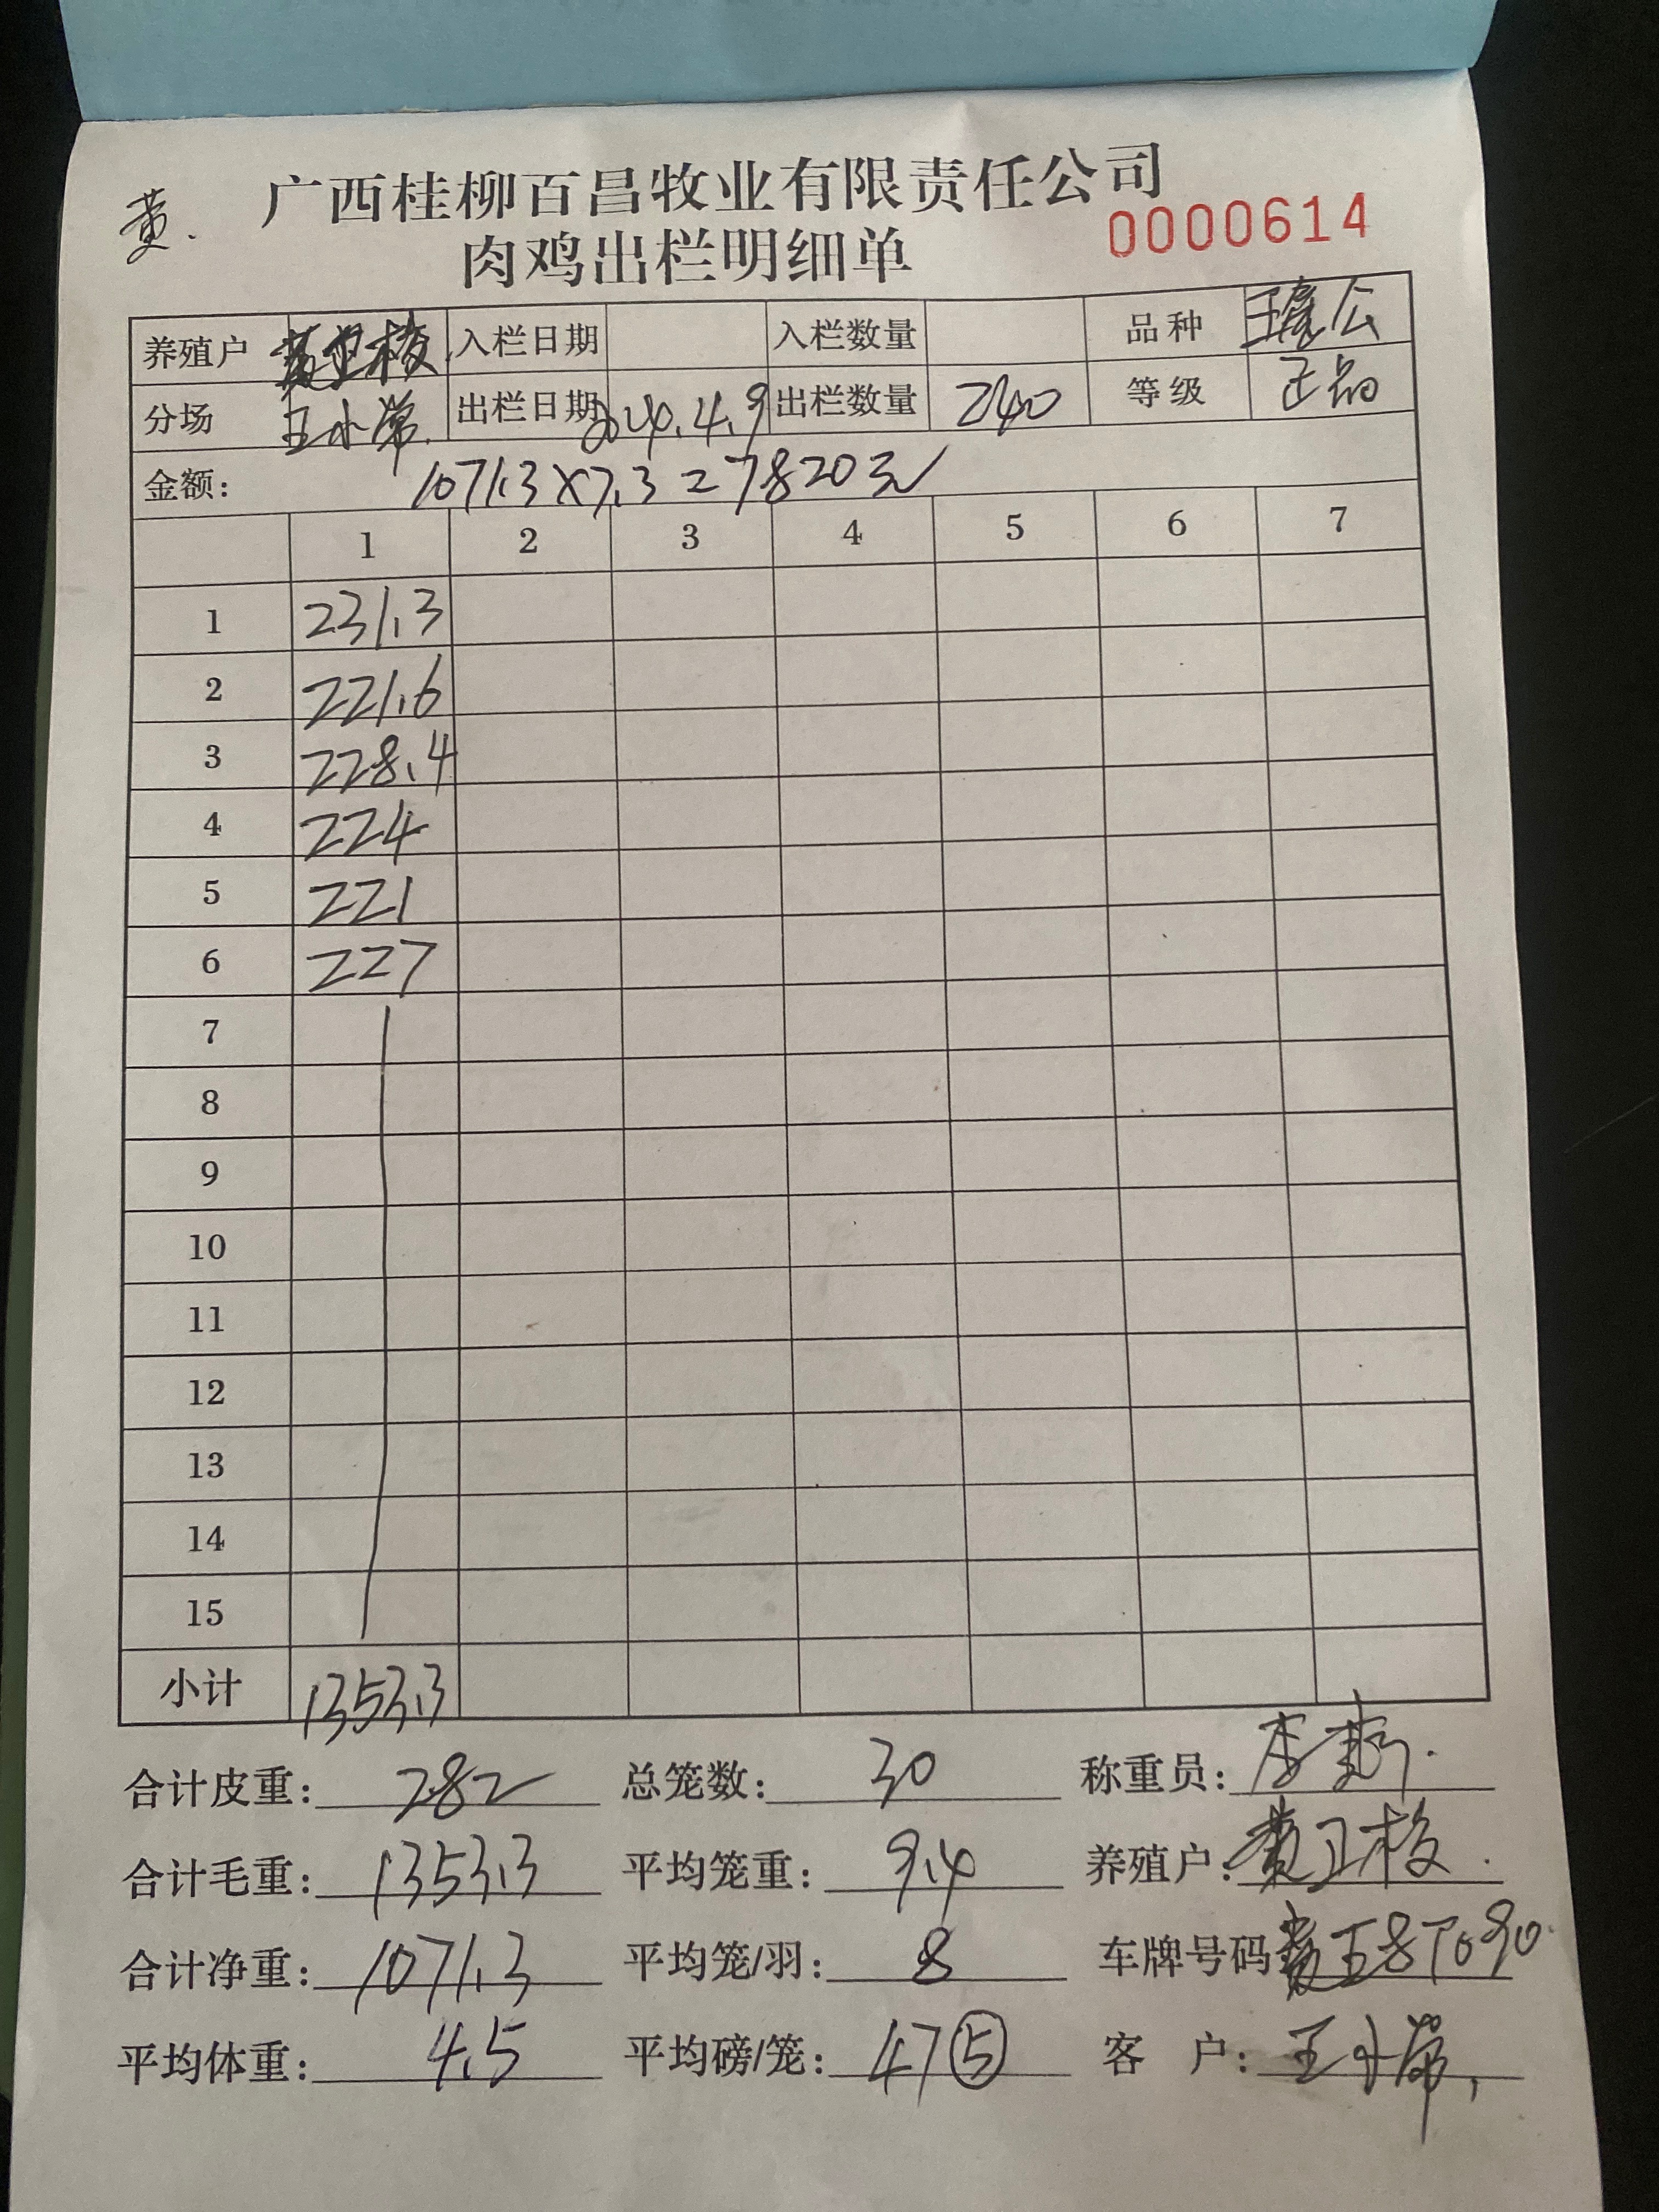 黄.
广西桂柳百昌牧业有限责任公司
肉鸡出栏明细单
0000614
养殖户 入栏日期 入栏数量 品种
分场 王小常. 出栏日期 2024.4.9 出栏数量 240 等级 正品
金额: 1071.3×7.3=7820元
1 2 3 4 5 6 7
1 231.3
2 221.6
3 228.4
4 224
5 221
6 227
7
8
9
10
11
12
13
14
15
小计 1353.3
合计皮重: 282 总笼数: 30 称重员: 李
合计毛重: 1353.3 平均笼重: 9.4 养殖户: 黄卫枝.
合计净重: 1071.3 平均笼/羽: 8 车牌号码
平均体重: 4.5 平均磅/笼: 47⑤ 客 户: 王小常,